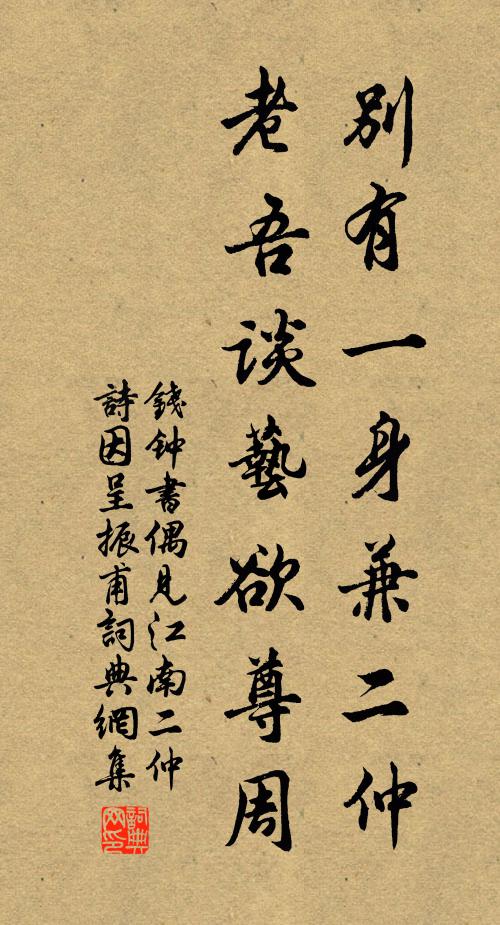 別有一身兼二仲
老吾談藝欲尊周
錢钟書偶見江南二仲
詩因呈振甫詞典網集
詞典
网印